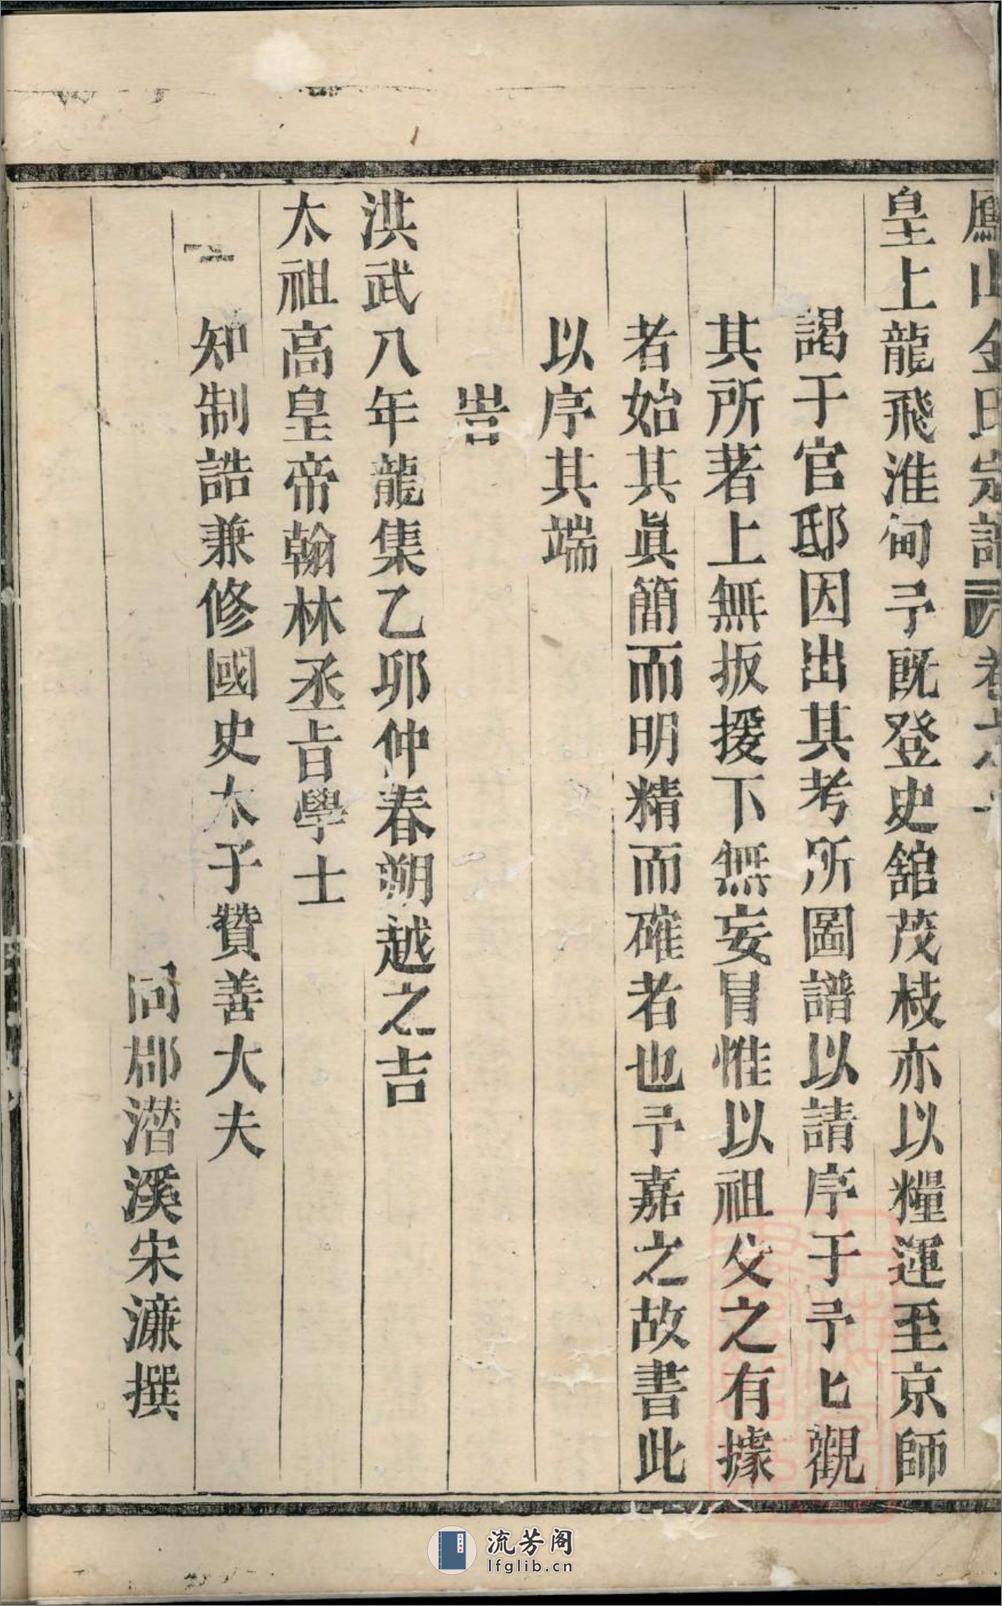 鳳山金氏宗譜 卷之
皇上龍飛淮甸予既登史舘茂枝亦以糧運至京師
謁于官邸因出其考所圖譜以請序于予匕觀
其所著上無扳援下無妄冐惟以祖父之有據
者始其眞簡而明精而確者也予嘉之故書此
以序其端
旹
洪武八年龍集乙夘仲春朔越之吉
太祖高皇帝翰林丞旨學士
知制誥兼修國史太子贊善大夫
同郡潛溪宋濂撰
流芳阁
lfglib.cn